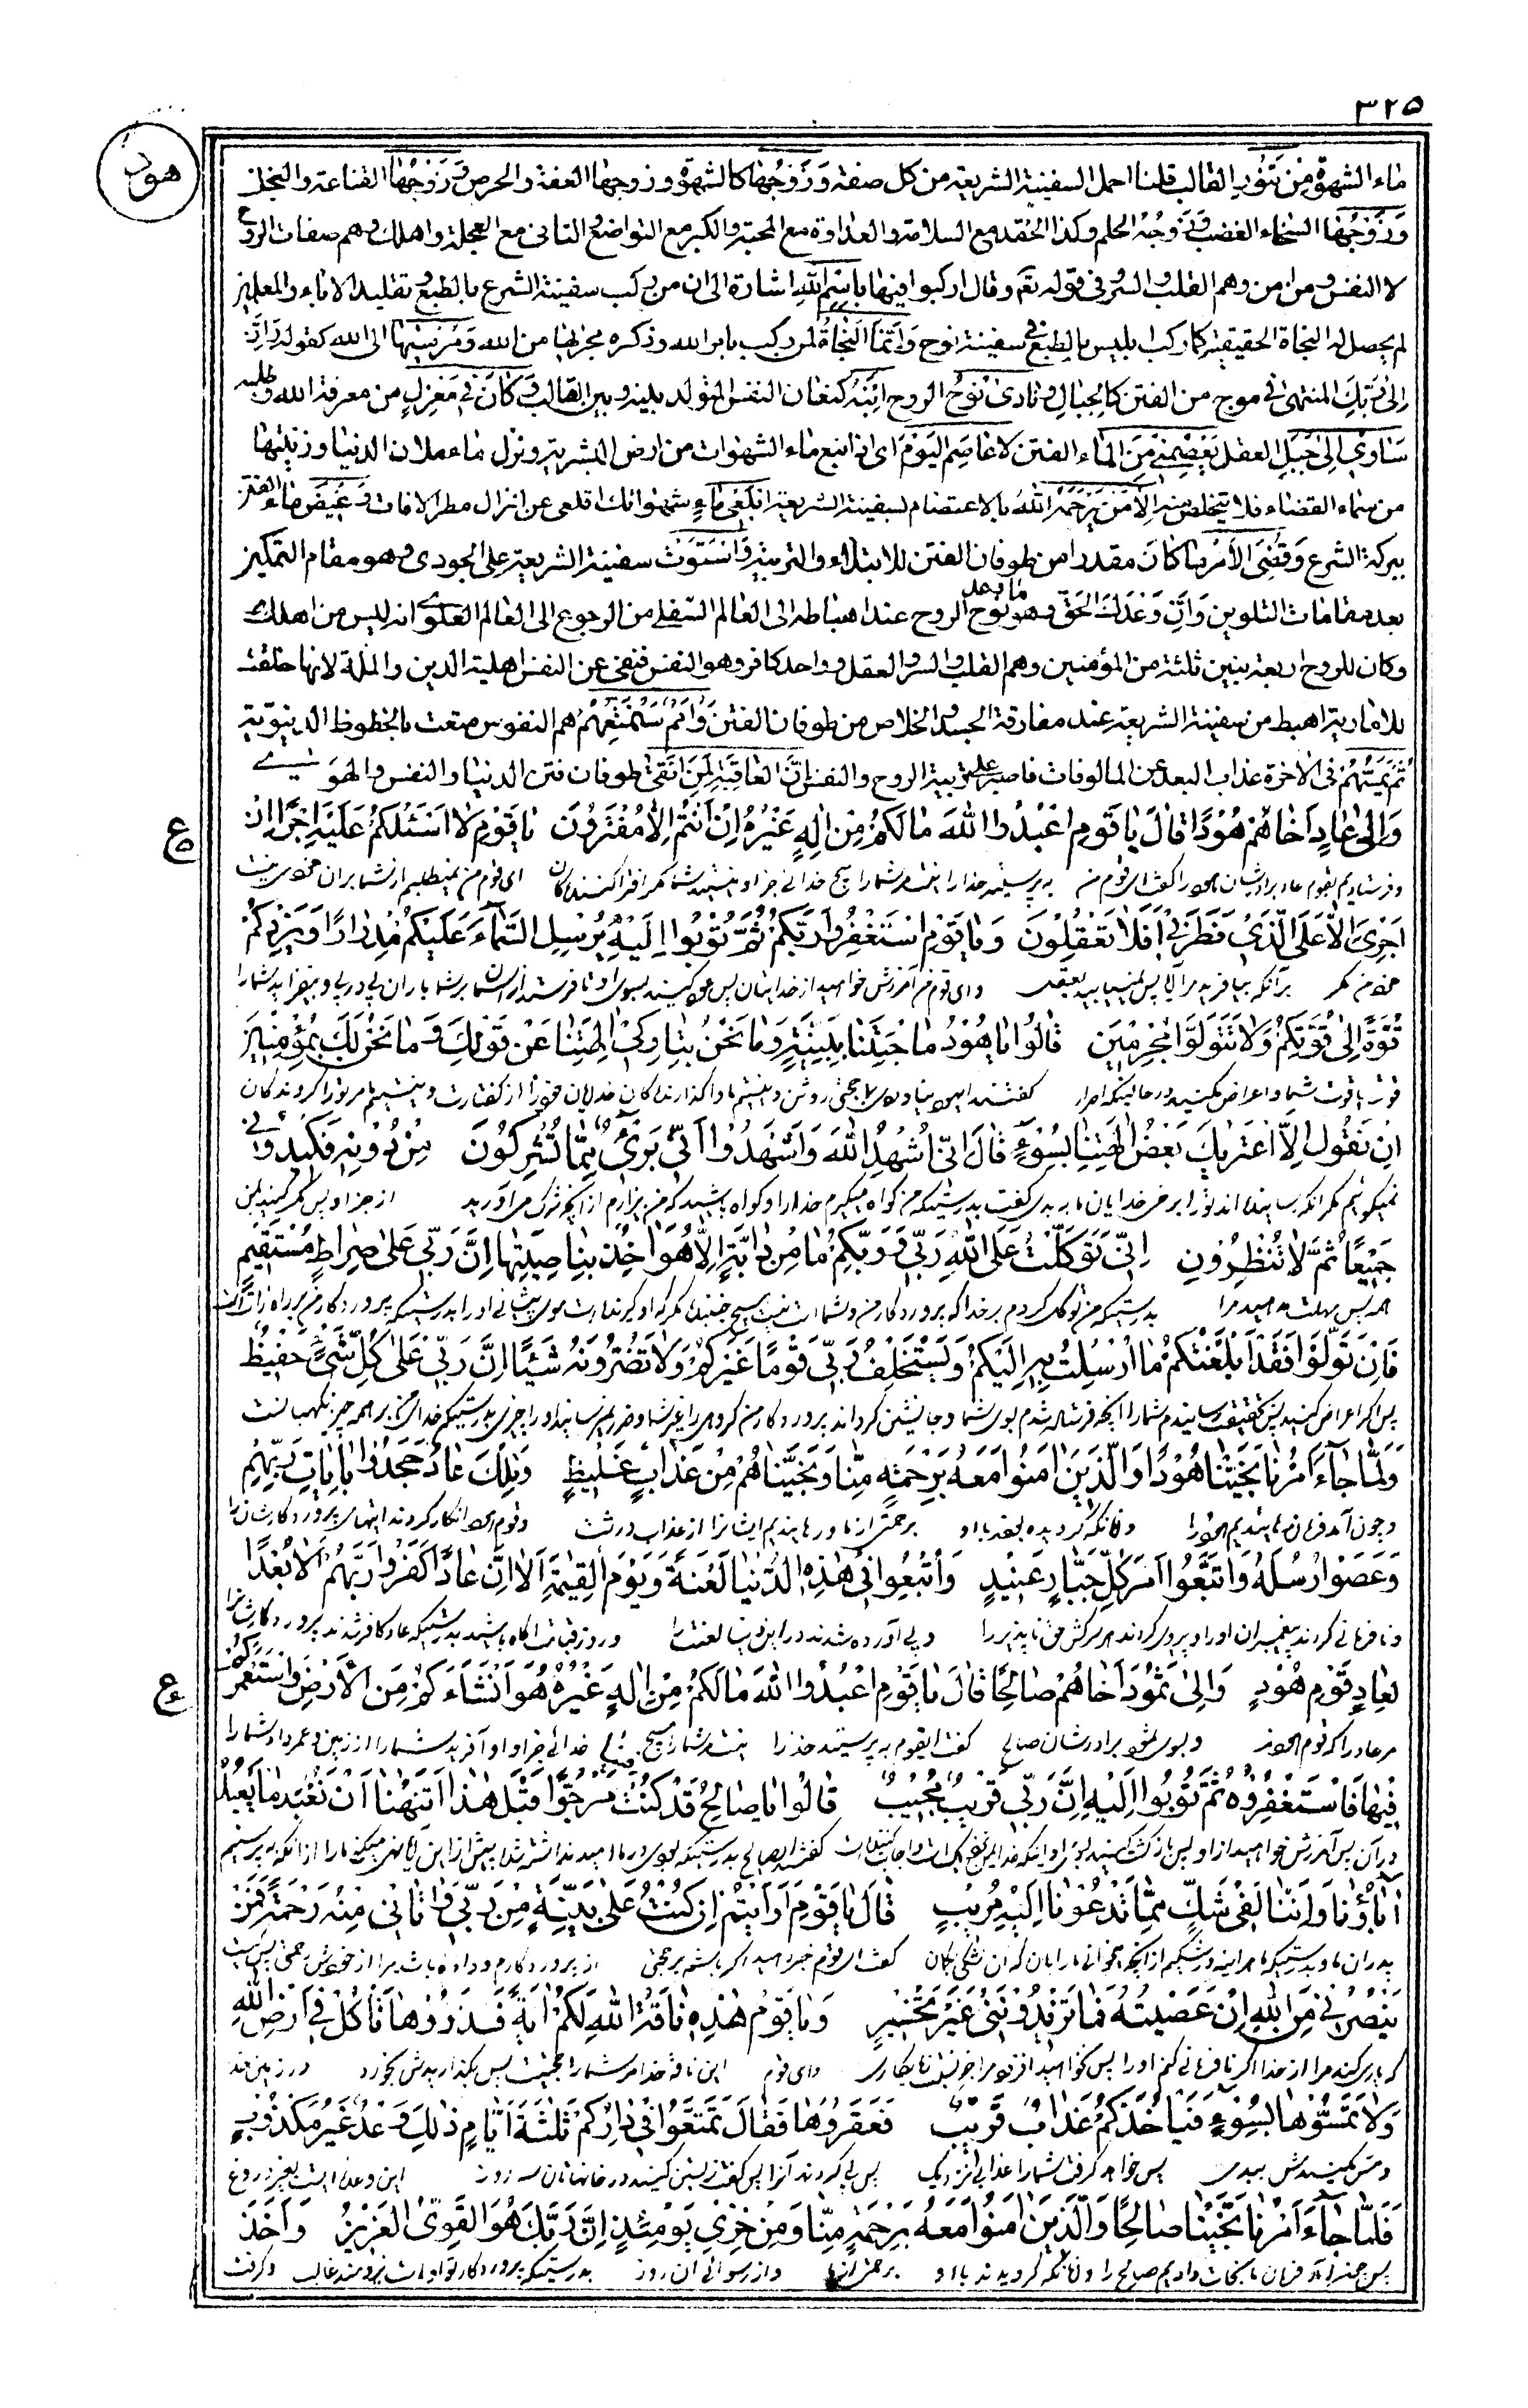 ٣٢٥
هود
ماء الشهوة من تنور القالب قلنا احمل السفينة الشريعة من كل صفة وزوجها كالشهوة وزوجها العفة والحرص وزوجها القناعة والبخل
وزوجها السخاء الغضب وزوجه الحلم وكذا الحقد مع السلامة والعداوة مع المحبة والكبر مع التواضع والتانى مع العجلة واهلك وهم صفات الروح
لا النفس ومن امن وهم القلب والسر فى قوله تع وقال اركبوا فيها باسم الله اشارة الى ان من ركب سفينة الشرع بالطبع وتقليد الاباء والمعلمين
لم يحصل له النجاة الحقيقية كما ركب ابليس بالطبع فى سفينة نوح وانما النجاة لمن ركب بامر الله وذكره مجريها من الله ومرسيها الى الله كقوله وان
الى ربك المنتهى فى موج من الفتن كالجبال ونادى نوح الروح ابنه كنعان النفس المتولد بينه وبين القالب وكان فى معزل من معرفة الله وطلبه
ساوى الى جبل العقل يعصمنى من الماء الفتن لا عاصم اليوم اى اذا نبع ماء الشهوات من ارض البشرية ونزل ماء ملاذ الدنيا وزينتها
من سماء القضاء فلا يتخلص منه الا من يرحمه الله بالاعتصام لسفينة الشريعة ابلعى ماء شهواتك اقلعى عن انزال مطر الافات وغيض ماء الفتن
ببركة الشرع وقضى الامر ما كان مقدرا من طوفان الفتن للابتلاء والتربية واستوت سفينة الشريعة على الجودى وهو مقام التمكين
بعد مقامات التلوين وان وعدك الحق وهو ما وعد نوح الروح عند اهباطه الى العالم السفلى من الرجوع الى العالم العلوى انه ليس من اهلك
وكان للروح اربعة بنين ثلثة من المؤمنين وهم القلب والسر والعقل وواحد كافر وهو النفس فنفى عن النفس اهلية الدين والملة لانها خلقت
للامارية اهبط من سفينة الشريعة عند مفارقة الجسد الخلاص من طوفان الفتن وامم سنمتعهم هم النفوس متعت بالحظوظ الدنيوية
ثم يمسهم فى الاخرة عذاب البعد عن المالوفات فاصبر على تربية الروح والنفس ان العاقبة لمن اتقى طوفان فتن الدنيا والنفس والهوى
وَاِلىٰ عادٍ اَخاهُمْ هُوداً قالَ يا قَومِ اعْبُدُوا اللهَ مالَكُمْ مِنْ اِلهٍ غَيْرُهُ اِنْ اَنْتُمْ اِلاّ مُفْتَرُونَ يا قَوْمِ لا اَسْئَلُكُمْ عَلَيْهِ اَجْراً اِنْ
ع
وفرستاديم بقوم عاد برادرشان هود را گفت اى قوم من به پرستيد خدا را نيست مر شما را هيچ خدائى جز او نيستيد شما مگر افترا كنندگان اى قوم من نميطلبم از شما بر ان مزدى نيست
اَجْرِىَ اِلاّ عَلَى الَّذى فَطَرَنى اَفَلا تَعْقِلُونَ وَيا قَوْمِ اسْتَغْفِرُوا رَبَّكُمْ ثُمَّ تُوبُوا اِلَيْهِ يُرْسِلِ السَّماءَ عَلَيْكُمْ مِدْراراً وَيَزِدْكُمْ
مزد من مگر بر آنكه بيافريد مرا آيا پس نمييابيد بعقل واى قوم من آمرزش خواهيد از خدايتان پس توبه كنيد بسوى او تا فرستد از آسمان بر شما باران پى در پى و بيفزايد شما را
قُوَّةً اِلىٰ قُوَّتِكُمْ وَلا تَتَوَلَّوْا مُجْرِمينَ قالُوا يا هُودُ ما جِئْتَنا بِبَيِّنَةٍ وَما نَحْنُ بِتارِكى الِهَتِنا عَنْ قَوْلِكَ وَما نَحْنُ لَكَ بِمُؤْمِنينَ
قوت با قوت شما و اعراض مكنيد در حالتيكه اصرار گفتند ايهود نياوردى ما را حجتى روشن و نيستيم ما واگذارندگان خدايان خود را از گفتارت و نيستيم ما مر تو را گروندگان
اِنْ نَقُولُ اِلاَّ اعْتَريكَ بَعْضُ الِهَتِنا بِسُوءٍ قالَ اِنّى اُشْهِدُ اللهَ وَاشْهَدُوا اَنّى بَرىءٌ مِمّا تُشْرِكُونَ مِنْ دُونِهِ فَكيدُونى
نميگوئيم مگر آنكه رسانيده‌اند تو را برخى خدايان ما بدى گفت بدرستيكه من گواه ميگيرم خدا را و گواه باشيد كه من بيزارم از آنچه شرك مى‌آوريد از جز او پس مكر كنيد بمن
جَميعاً ثُمَّ لا تُنْظِرُونِ اِنّى تَوَكَّلْتُ عَلَى اللهِ رَبّى وَرَبِّكُمْ ما مِنْ دابَّةٍ اِلاّ هُوَ اخِذٌ بِناصِيَتِها اِنَّ رَبّى عَلىٰ صِراطٍ مُسْتَقيمٍ
همه پس مهلت مدهيد مرا بدرستيكه من توكل كردم بر خدا كه پروردگار من و شما است نيست هيچ جنبنده مگر كه او گيرنده است موى پيشانى او را بدرستيكه پروردگار من بر راه راست است
فَاِنْ تَوَلَّوْا فَقَدْ اَبْلَغْتُكُمْ ما اُرْسِلْتُ بِهِ اِلَيْكُمْ وَيَسْتَخْلِفُ رَبّى قَوْماً غَيْرَكُمْ وَلا تَضُرُّونَهُ شَيْئاً اِنَّ رَبّى عَلىٰ كُلِّ شَىْءٍ حَفيظٌ
پس اگر اعراض كنيد پس بتحقيقت رسانيدم شما را آنچه فرستاده شدم بسوى شما و جانشين گرداند پروردگار من گروهى را غير شما و ضرر نميرسانيد او را چيزى بدرستيكه خداى من بر همه چيز نگهبانست
وَلَمّا جاءَ اَمْرُنا نَجَّيْنا هُوداً وَالَّذينَ امَنُوا مَعَهُ بِرَحْمَةٍ مِنّا وَنَجَّيْناهُمْ مِنْ عَذابٍ غَليظٍ وَتِلْكَ عادٌ جَحَدُوا بِاياتِ رَبِّهِمْ
و چون آمد فرمان ما رهانيديم هود را و آنانكه گرديده بودند با او برحمتى از ما و رهانيديم ايشانرا از عذاب درشت وقوم هود انكار كردند آيتهاى پروردگارشان را
وَعَصَوْا رُسُلَهُ وَاتَّبَعُوا اَمْرَ كُلِّ جَبّارٍ عَنيدٍ وَاُتْبِعُوا فى هٰذِهِ الدُّنْيا لَعْنَةً وَيَوْمَ الْقِيمَةِ اَلا اِنَّ عاداً كَفَرُوا رَبَّهُمْ اَلا بُعْداً
و نافرمانى كردند پيغمبران او را و پيروى كردند هر سركش حق ناپذير را و پى آورده شدند در اين دنيا لعنت را و روز قيامت آگاه باشيد بدرستيكه عاد كافر شدند پروردگارشانرا
لِعادٍ قَوْمِ هُودٍ وَاِلىٰ ثَمُودَ اَخاهُمْ صالِحاً قالَ يا قَوْمِ اعْبُدُوا اللهَ مالَكُمْ مِنْ اِلهٍ غَيْرُهُ هُوَ اَنْشَاَكُمْ مِنَ الْاَرْضِ وَاسْتَعْمَرَكُمْ
ع
مر عاد را كه قوم هودند و بسوى ثمود برادرشان صالح گفت ايقوم به پرستيد خدا را نيست مر شما را هيچ خدائى جز او او آفريد شما را از زمين و عمر داد شما را
فيها فَاسْتَغْفِرُوهُ ثُمَّ تُوبُوا اِلَيْهِ اِنَّ رَبّى قَريبٌ مُجيبٌ قالُوا يا صالِحُ قَدْ كُنْتَ فينا مَرْجُوّاً قَبْلَ هٰذا اَتَنْهٰنا اَنْ نَعْبُدَ ما يَعْبُدُ
در آن پس آمرزش خواهيد از او پس بازگشت كنيد بسوى او
اباؤُنا وَاِنَّنا لَفى شَكٍّ مِمّا تَدْعُونا اِلَيْهِ مُريبٍ قالَ يا قَوْمِ اَرَاَيْتُمْ اِنْ كُنْتُ عَلىٰ بَيِّنَةٍ مِنْ رَبّى وَاتانى مِنْهُ رَحْمَةً فَمَنْ
گفت اى قوم خبر دهيد اگر باشم بر حجتى از پروردگارم و داده باشد مرا از خودش رحمتى پس كيست
يَنْصُرُنى مِنَ اللهِ اِنْ عَصَيْتُهُ فَما تَزيدُونَنى غَيْرَ تَخْسيرٍ وَيا قَوْمِ هٰذِهِ ناقَةُ اللهِ لَكُمْ ايَةً فَذَرُوها تَاْكُلْ فى اَرْضِ اللهِ
كه يارى كند مرا از خدا اگر نافرمانى كنم او را پس نخواهيد افزود مرا جز نسبت زيانكارى واى قوم اين ناقه خدا مر شما را حجتيست پس بگذاريدش بخورد در زمين خدا
وَلا تَمَسُّوها بِسُوءٍ فَيَاْخُذَكُمْ عَذابٌ قَريبٌ فَعَقَرُوها فَقالَ تَمَتَّعُوا فى دارِكُمْ ثَلٰثَةَ اَيّامٍ ذٰلِكَ وَعْدٌ غَيْرُ مَكْذُوبٍ
و مس مكنيدش ببدى پس خواهد گرفت شما را عذابى نزديك پس پى كردند آنرا پس گفت زيستن كنيد در خانهاتان سه روز اين وعده ايست بغير دروغ
فَلَمّا جاءَ اَمْرُنا نَجَّيْنا صالِحاً وَالَّذينَ امَنُوا مَعَهُ بِرَحْمَةٍ مِنّا وَمِنْ خِزْىِ يَوْمِئِذٍ اِنَّ رَبَّكَ هُوَ الْقَوِىُّ الْعَزيزُ وَاَخَذَ
پس چون آمد فرمان ما نجات داديم صالح را و آنانكه گرديدند با او برحمتى از ما و از رسوائى ان روز بدرستيكه پروردگار تو اوست نيرومند غالب و گرفت